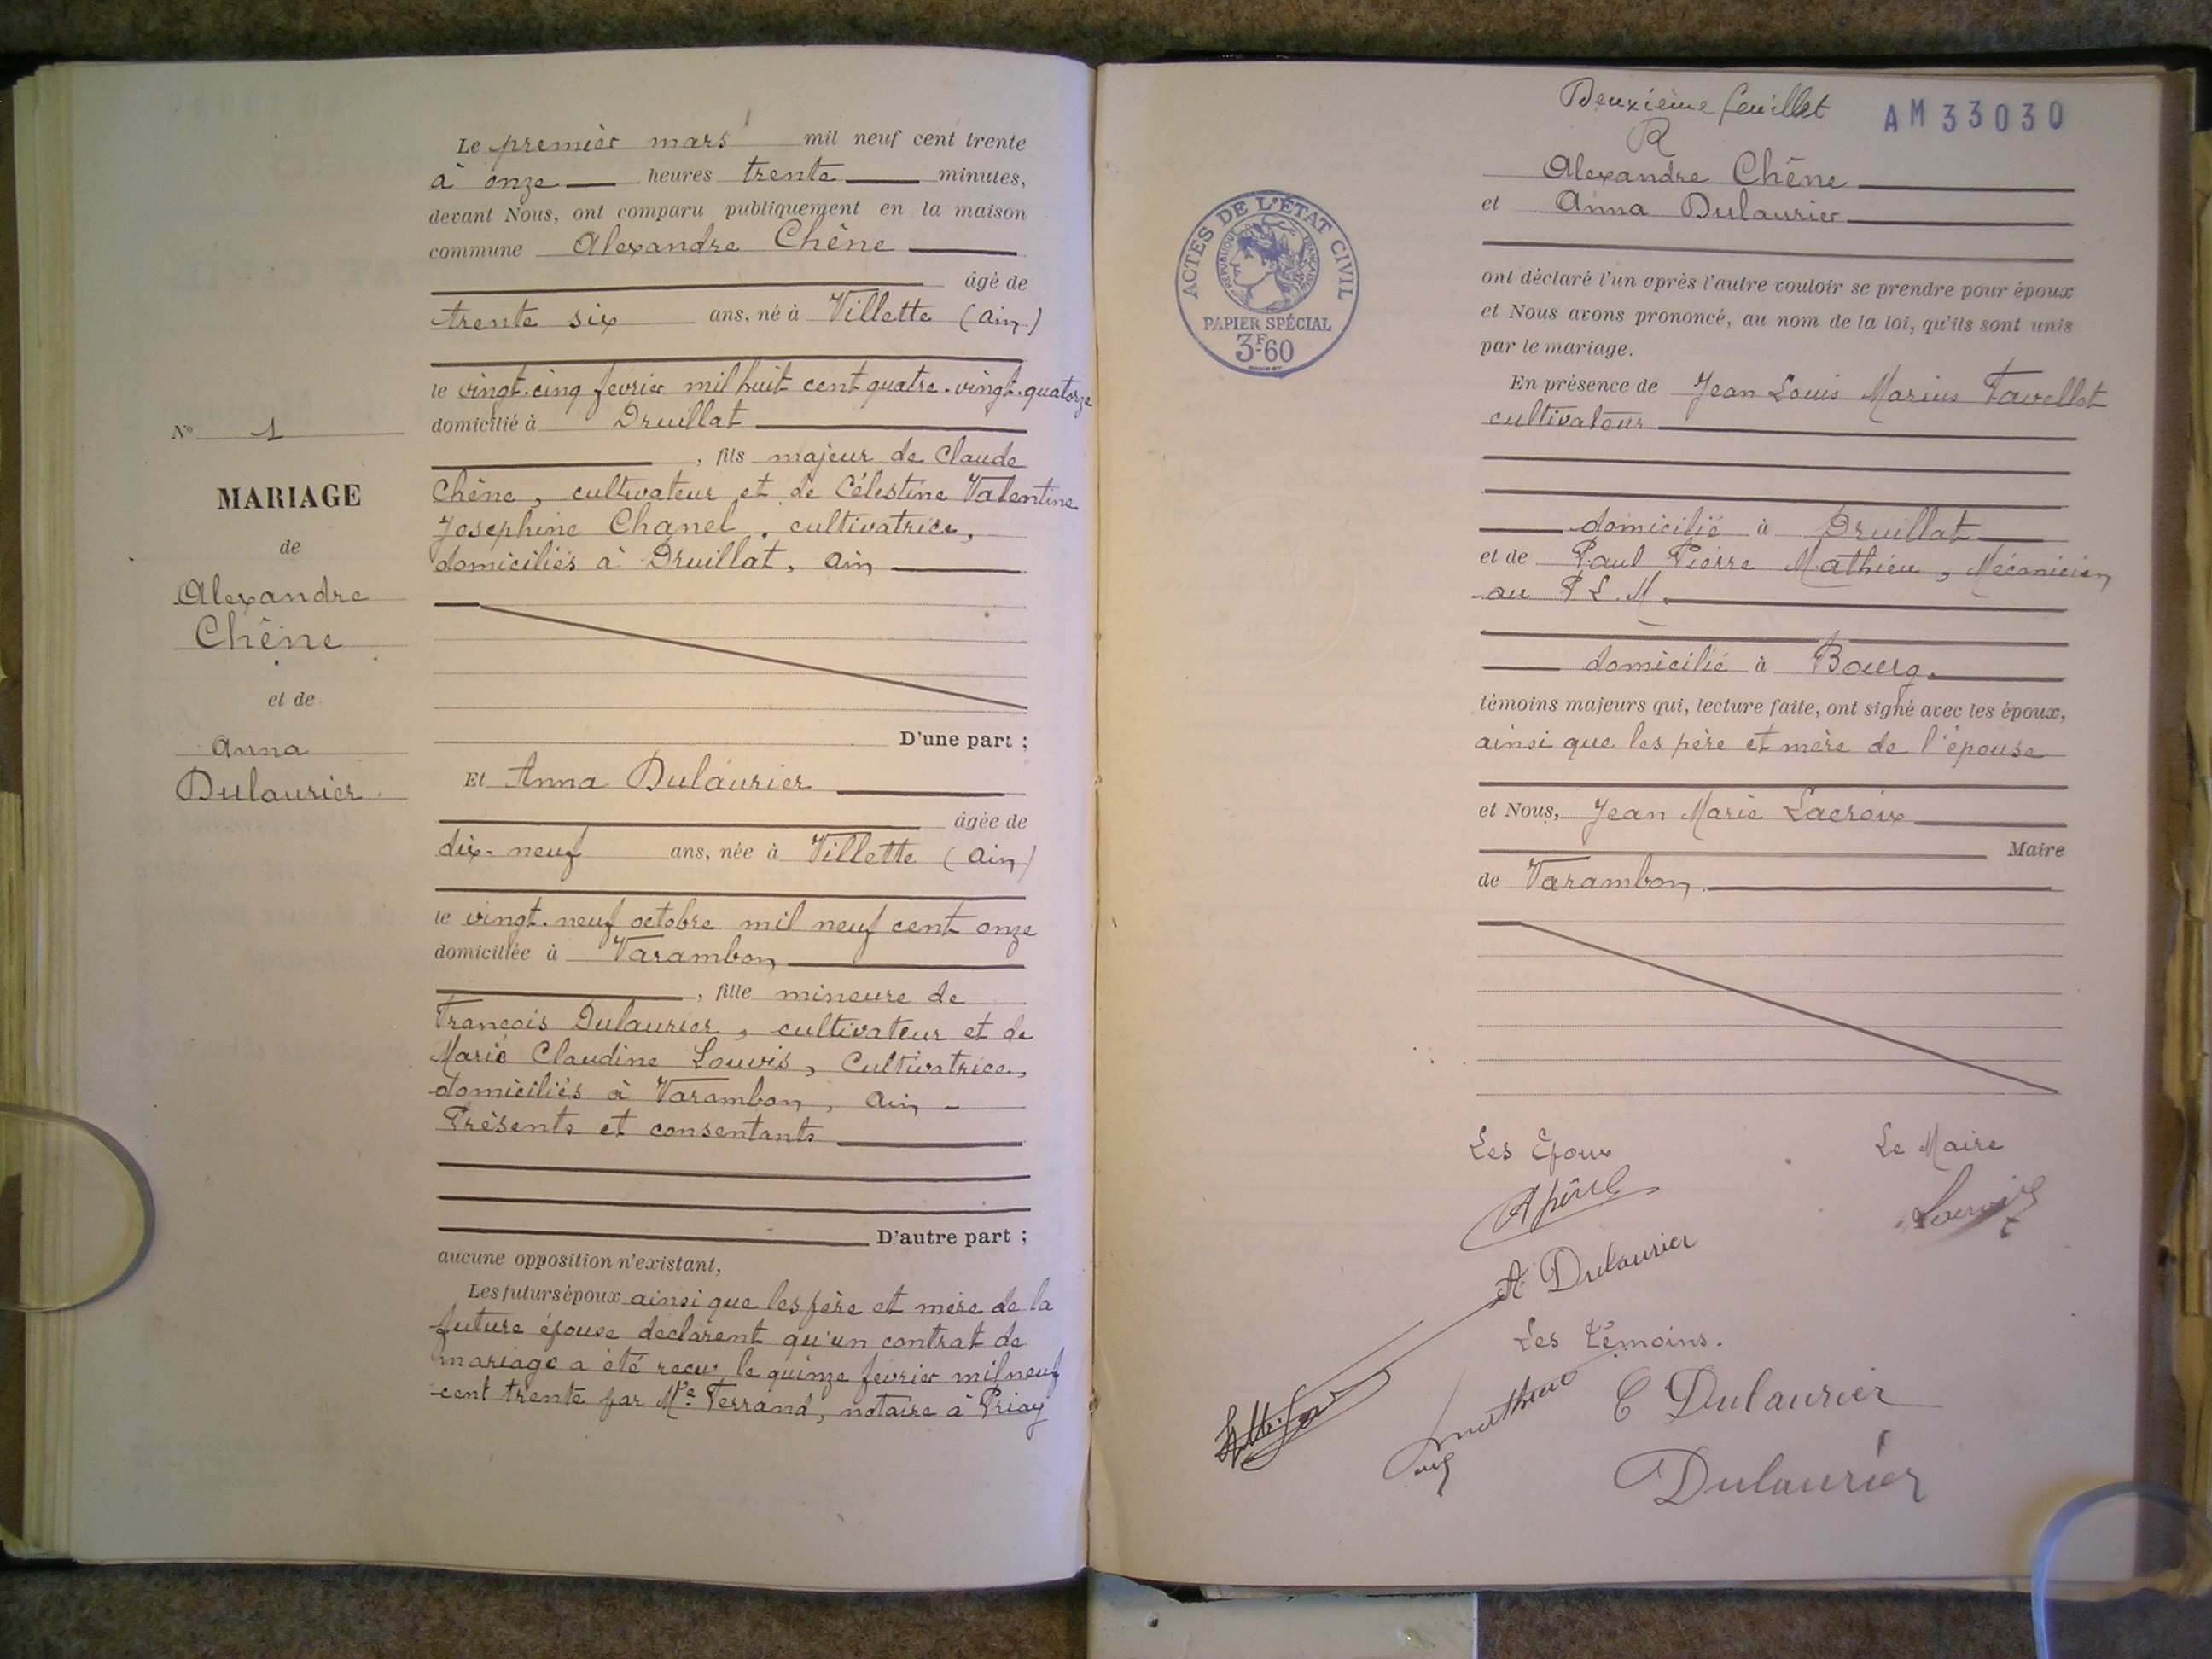 Le premier mars mil neuf cent trente
à onze heures trente minutes,
devant Nous, ont comparu publiquement en la maison
commune Alexandre Chêne
âgé de
trente six ans, né à Villette (Ain)
le vingt-cinq février mil huit cent quatre-vingt-quatorze
domicilié à Druillat
, fils majeur de Claude
Chêne, cultivateur et de Célestine Valentine
Josephine Chanel, cultivatrice,
domiciliés à Druillat, Ain
D'une part ;
N° 1
MARIAGE
de
Alexandre
Chêne
et de
Anna
Dulaurier
Et Anna Dulaurier
âgée de
dix-neuf ans, née à Villette (Ain)
le vingt-neuf octobre mil neuf cent onze
domiciliée à Varambon
, fille mineure de
François Dulaurier, cultivateur et de
Marie Claudine Louvis, Cultivatrice,
domiciliés à Varambon, Ain -
Présents et consentants
D'autre part ;
aucune opposition n'existant,
Les futurs époux ainsi que les père et mère de la
future épouse déclarent qu'un contrat de
mariage a été reçu le quinze février mil neuf
cent trente par Me Ferrand, notaire à Priay
Deuxième feuillet
AM 33030
R
ACTES DE L'ÉTAT CIVIL
RÉPUBLIQUE FRANÇAISE
PAPIER SPÉCIAL
3F60
Alexandre Chêne
et Anna Dulaurier
ont déclaré l'un après l'autre vouloir se prendre pour époux
et Nous avons prononcé, au nom de la loi, qu'ils sont unis
par le mariage.
En présence de Jean Louis Marius Favellet
cultivateur
domicilié à Druillat
et de Paul Pierre Mathieu, Mécanicien
au P L. M.
domicilié à Bourg.
témoins majeurs qui, lecture faite, ont signé avec les époux,
ainsi que les père et mère de l'épouse
et Nous, Jean Marie Lacroix
Maire
de Varambon
Les Epoux
Le Maire
Lacroix
A Dulaurier
Les Témoins.
Mathieu
C Dulaurier
Dulaurier